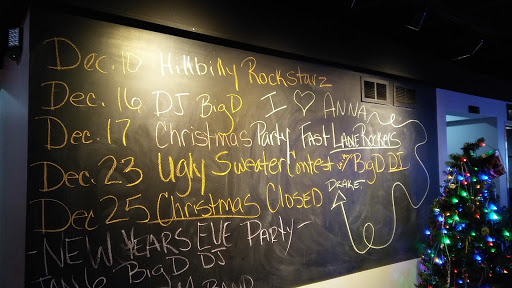 Dec. 10 Hillbilly Rockstarz
Dec. 16 DJ BigD
I ♡ ANNA
Dec. 17 Christmas Party Fast LANE Rockers
Dec. 23 Ugly Sweater Contest BigD DJ
DRAKE
Dec 25 Christmas Closed
- NEW YEARS EVE PARTY -
JAN 6 BigD DJ
BAND